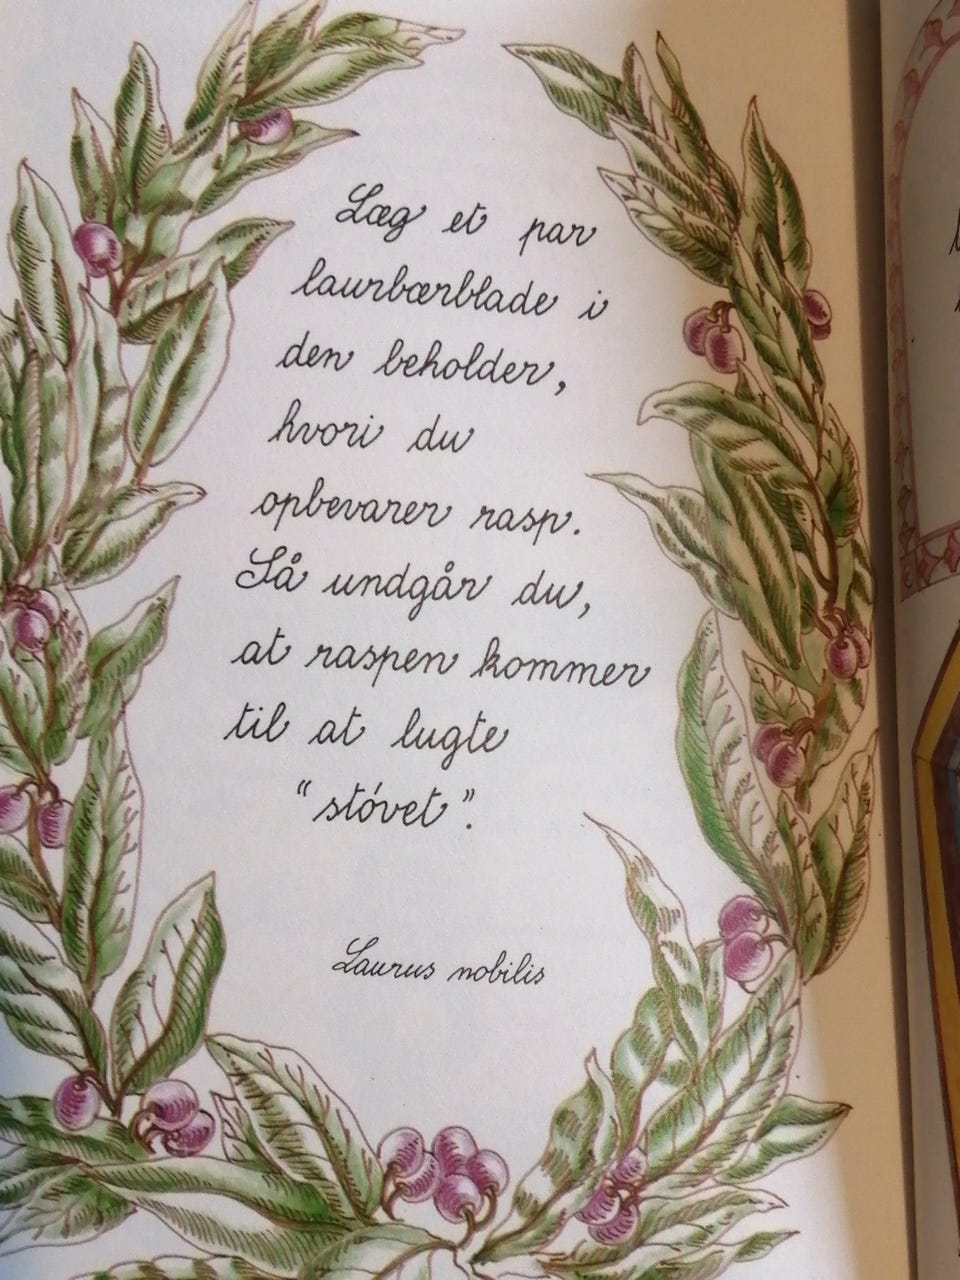 Læg et par
laurbærblade i
den beholder,
hvori du
opbevarer rasp.
Så undgår du,
at raspen kommer
til at lugte
"støvet".
Laurus nobilis